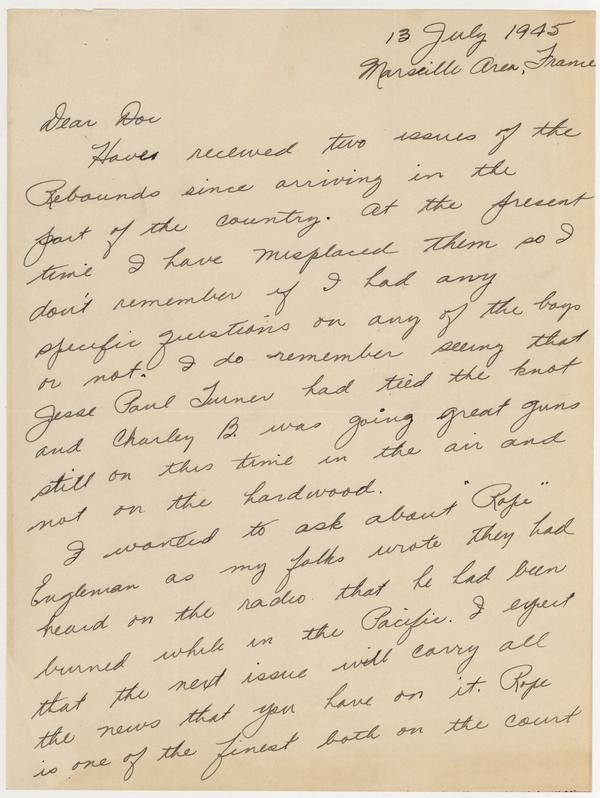 13 July 1945
Marseille Area, France
Dear Doc
Have received two issues of the
Rebounds since arriving in the
part of the country. At the present
time I have misplaced them so I
don't remember if I had any
specific questions on any of the boys
or not. I do remember seeing that
Jesse Paul Turner had tied the knot
and Charley B. was going great guns
still on this time in the air and
not on the hardwood.
I wanted to ask about "Rope"
Engleman as my folks wrote they had
heard on the radio that he had been
burned while in the Pacific. I expect
that the next issue will carry all
the news that you have on it. Rope
is one of the finest both on the court